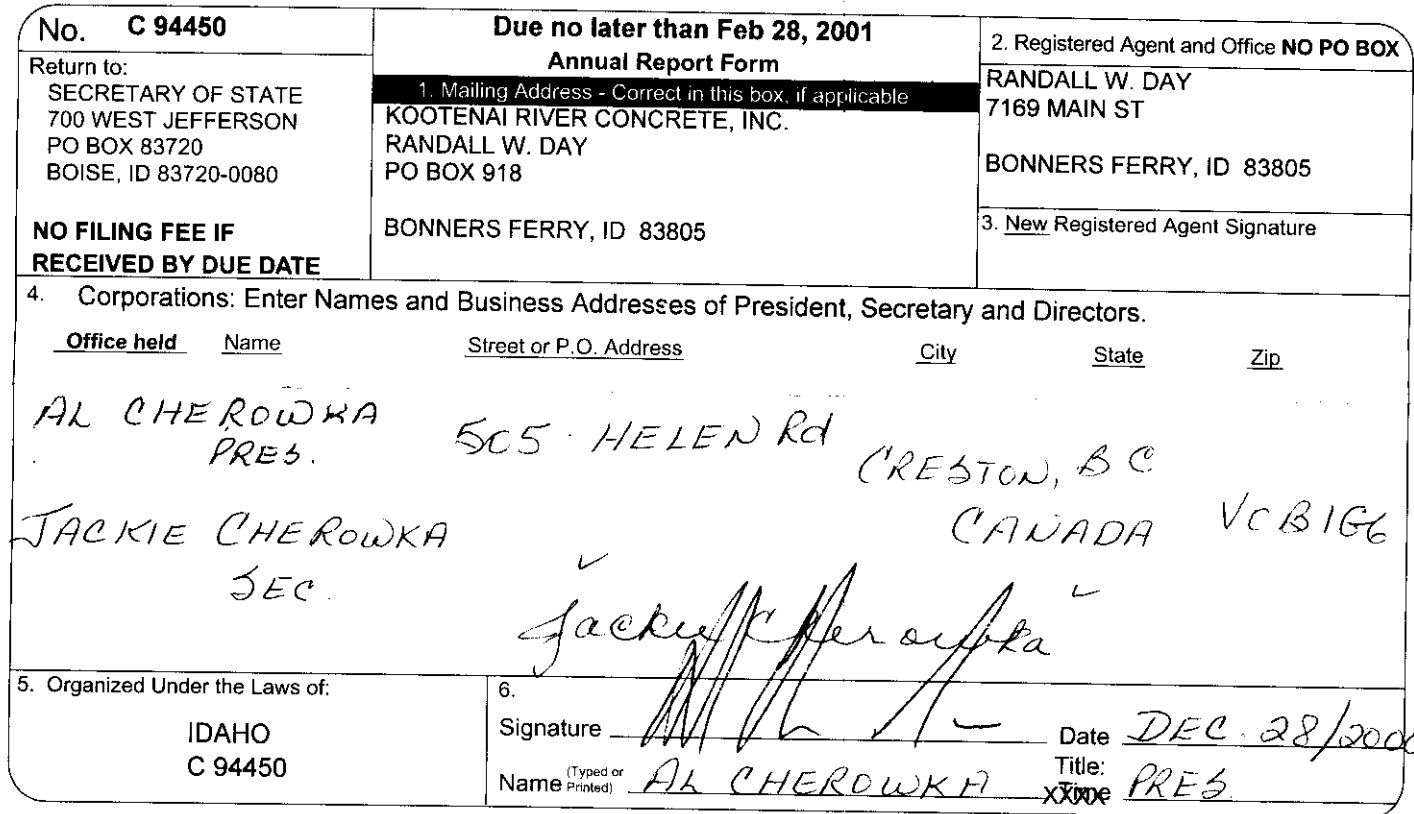 No. C 94450
Return to:
SECRETARY OF STATE
700 WEST JEFFERSON
PO BOX 83720
BOISE, ID 83720-0080
NO FILING FEE IF
RECEIVED BY DUE DATE
Due no later than Feb 28, 2001
Annual Report Form
1. Mailing Address - Correct in this box, if applicable
KOOTENAI RIVER CONCRETE, INC.
RANDALL W. DAY
PO BOX 918
BONNERS FERRY, ID 83805
2. Registered Agent and Office NO PO BOX
RANDALL W. DAY
7169 MAIN ST
BONNERS FERRY, ID 83805
3. New Registered Agent Signature
4. Corporations: Enter Names and Business Addresses of President, Secretary and Directors.
Office held Name Street or P.O. Address City State Zip
AL CHEROWKA 505 HELEN Rd
PRES. CRESTON, BC
JACKIE CHEROWKA CANADA
SEC.
Jackie Cherowka
5. Organized Under the Laws of:
IDAHO
C 94450
6.
Signature Date DEC. 28/2000
Name (Typed or Printed) AL CHEROWKA Title: PRES.